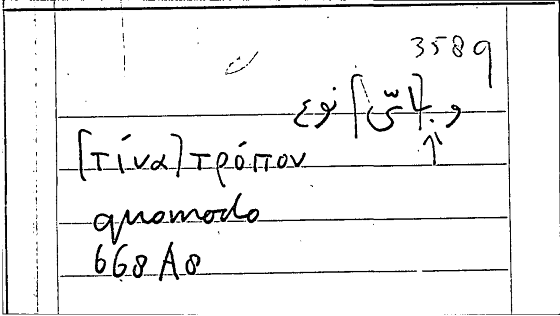 3589
و [بأيّ] نوع
↑
[τίνα] τρόπον
quomodo
668 A8